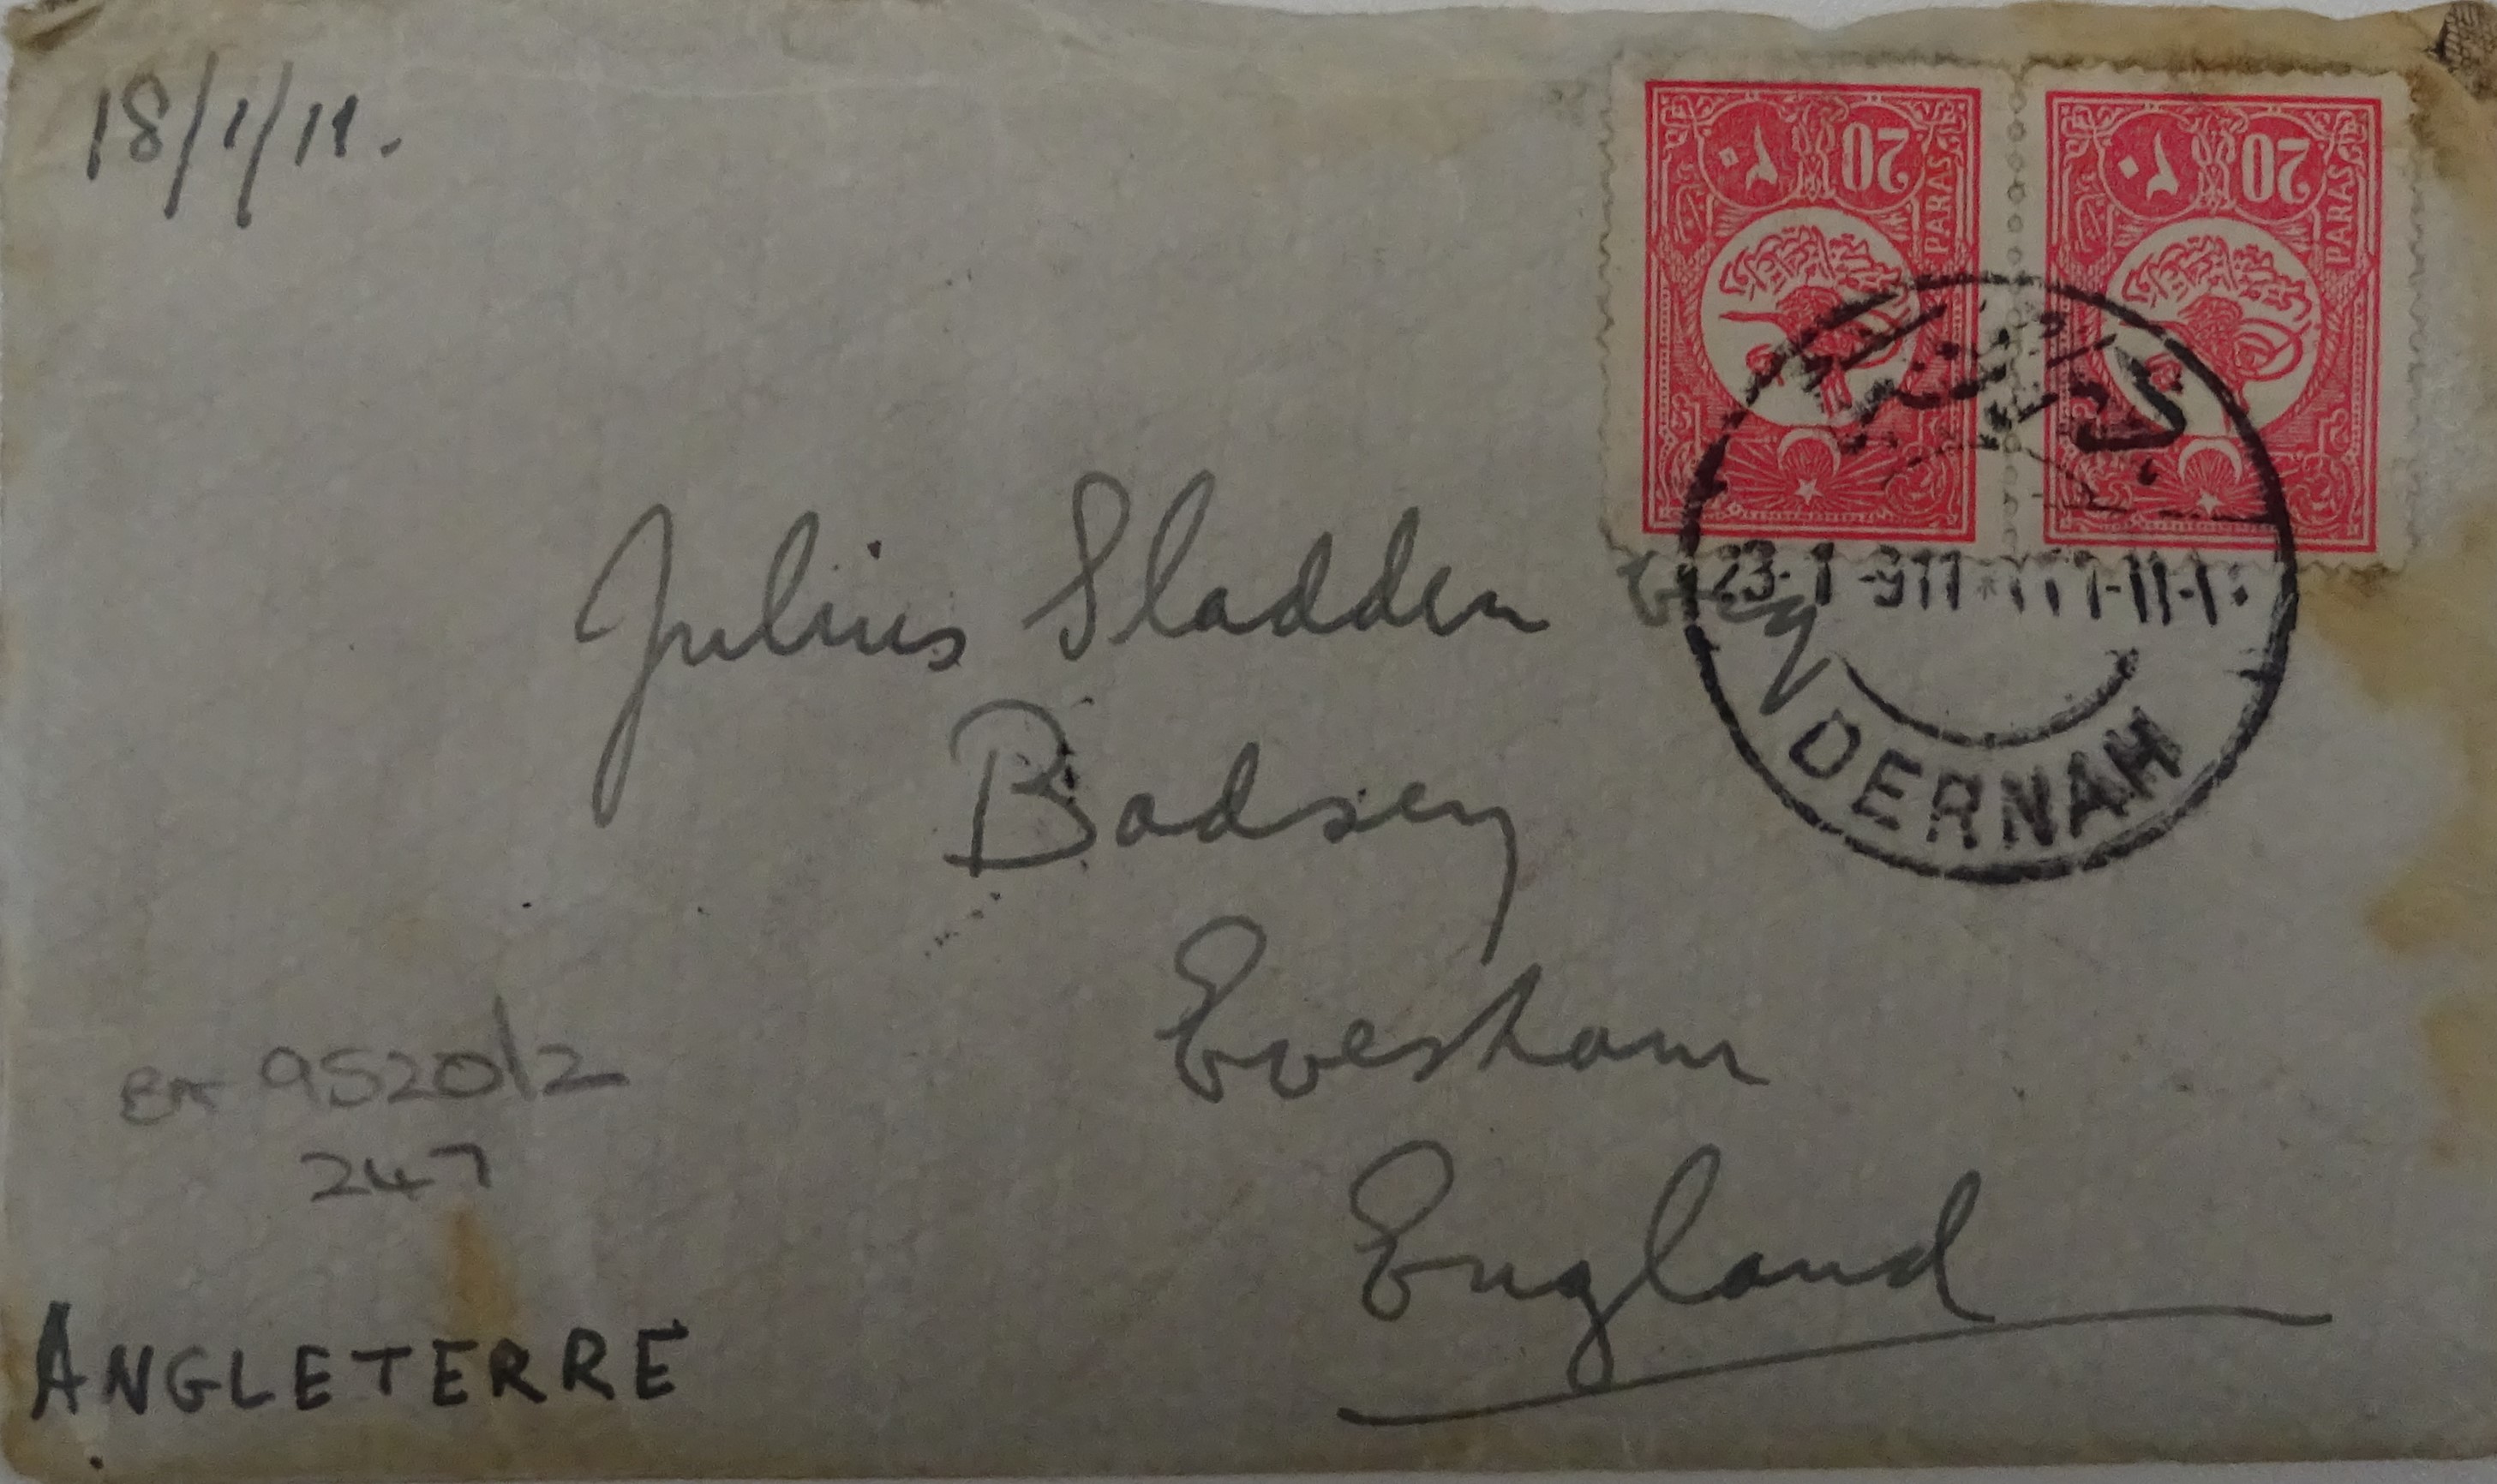 18/1/11.
20 ٢٠
PARAS
20 ٢٠
PARAS
Julius Sladden Esq
23-1-911 *
DERNAH
Badsey
Evesham
England
9520/2
247
ANGLETERRE